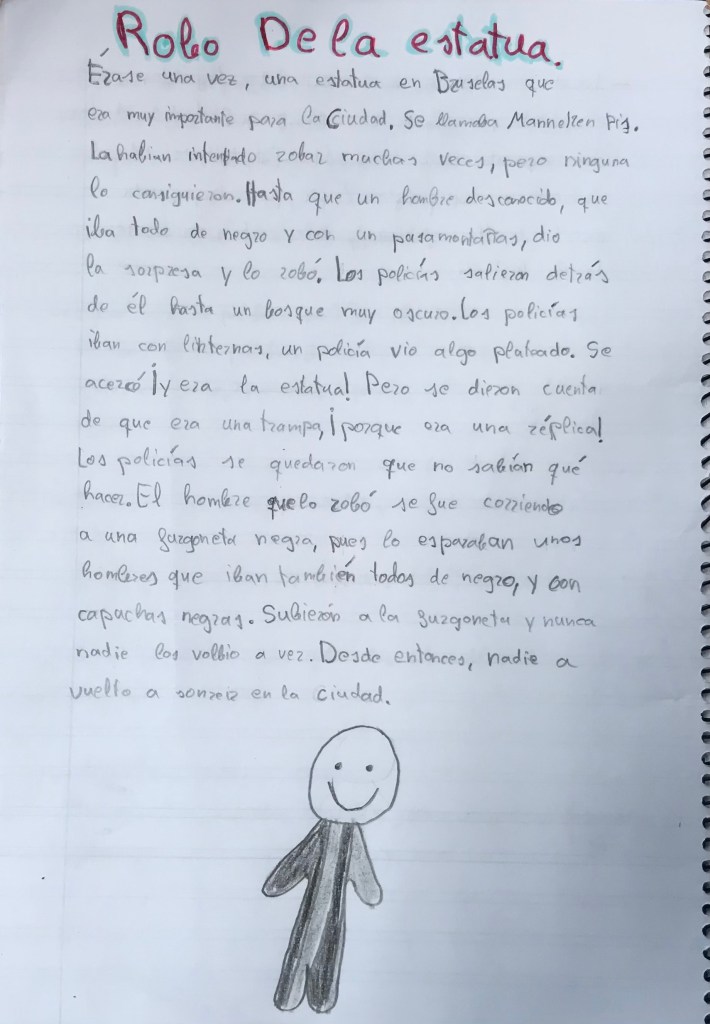 Robo De la estatua.
Érase una vez, una estatua en Bruselas que
era muy importante para la Ciudad. Se llamaba Manneken Pis.
La habían intentado robar muchas veces, pero ninguna
lo consiguieron. Hasta que un hombre desconocido, que
iba todo de negro y con un pasamontañas, dio
la sorpresa y lo robó. Los policías salieron detrás
de él hasta un bosque muy oscuro. Los policías
iban con linternas, un policía vio algo plateado. Se
acercó ¡y era la estatua! Pero se dieron cuenta
de que era una trampa, ¡porque era una réplica!
Los policías se quedaron que no sabían qué
hacer. El hombre que lo robó se fue corriendo
a una furgoneta negra, pues lo esparaban unos
hombres que iban también todos de negro, y con
capuchas negras. Subierón a la furgoneta y nunca
nadie los volbio a ver. Desde entonces, nadie a
vuelto a sonreir en la ciudad.